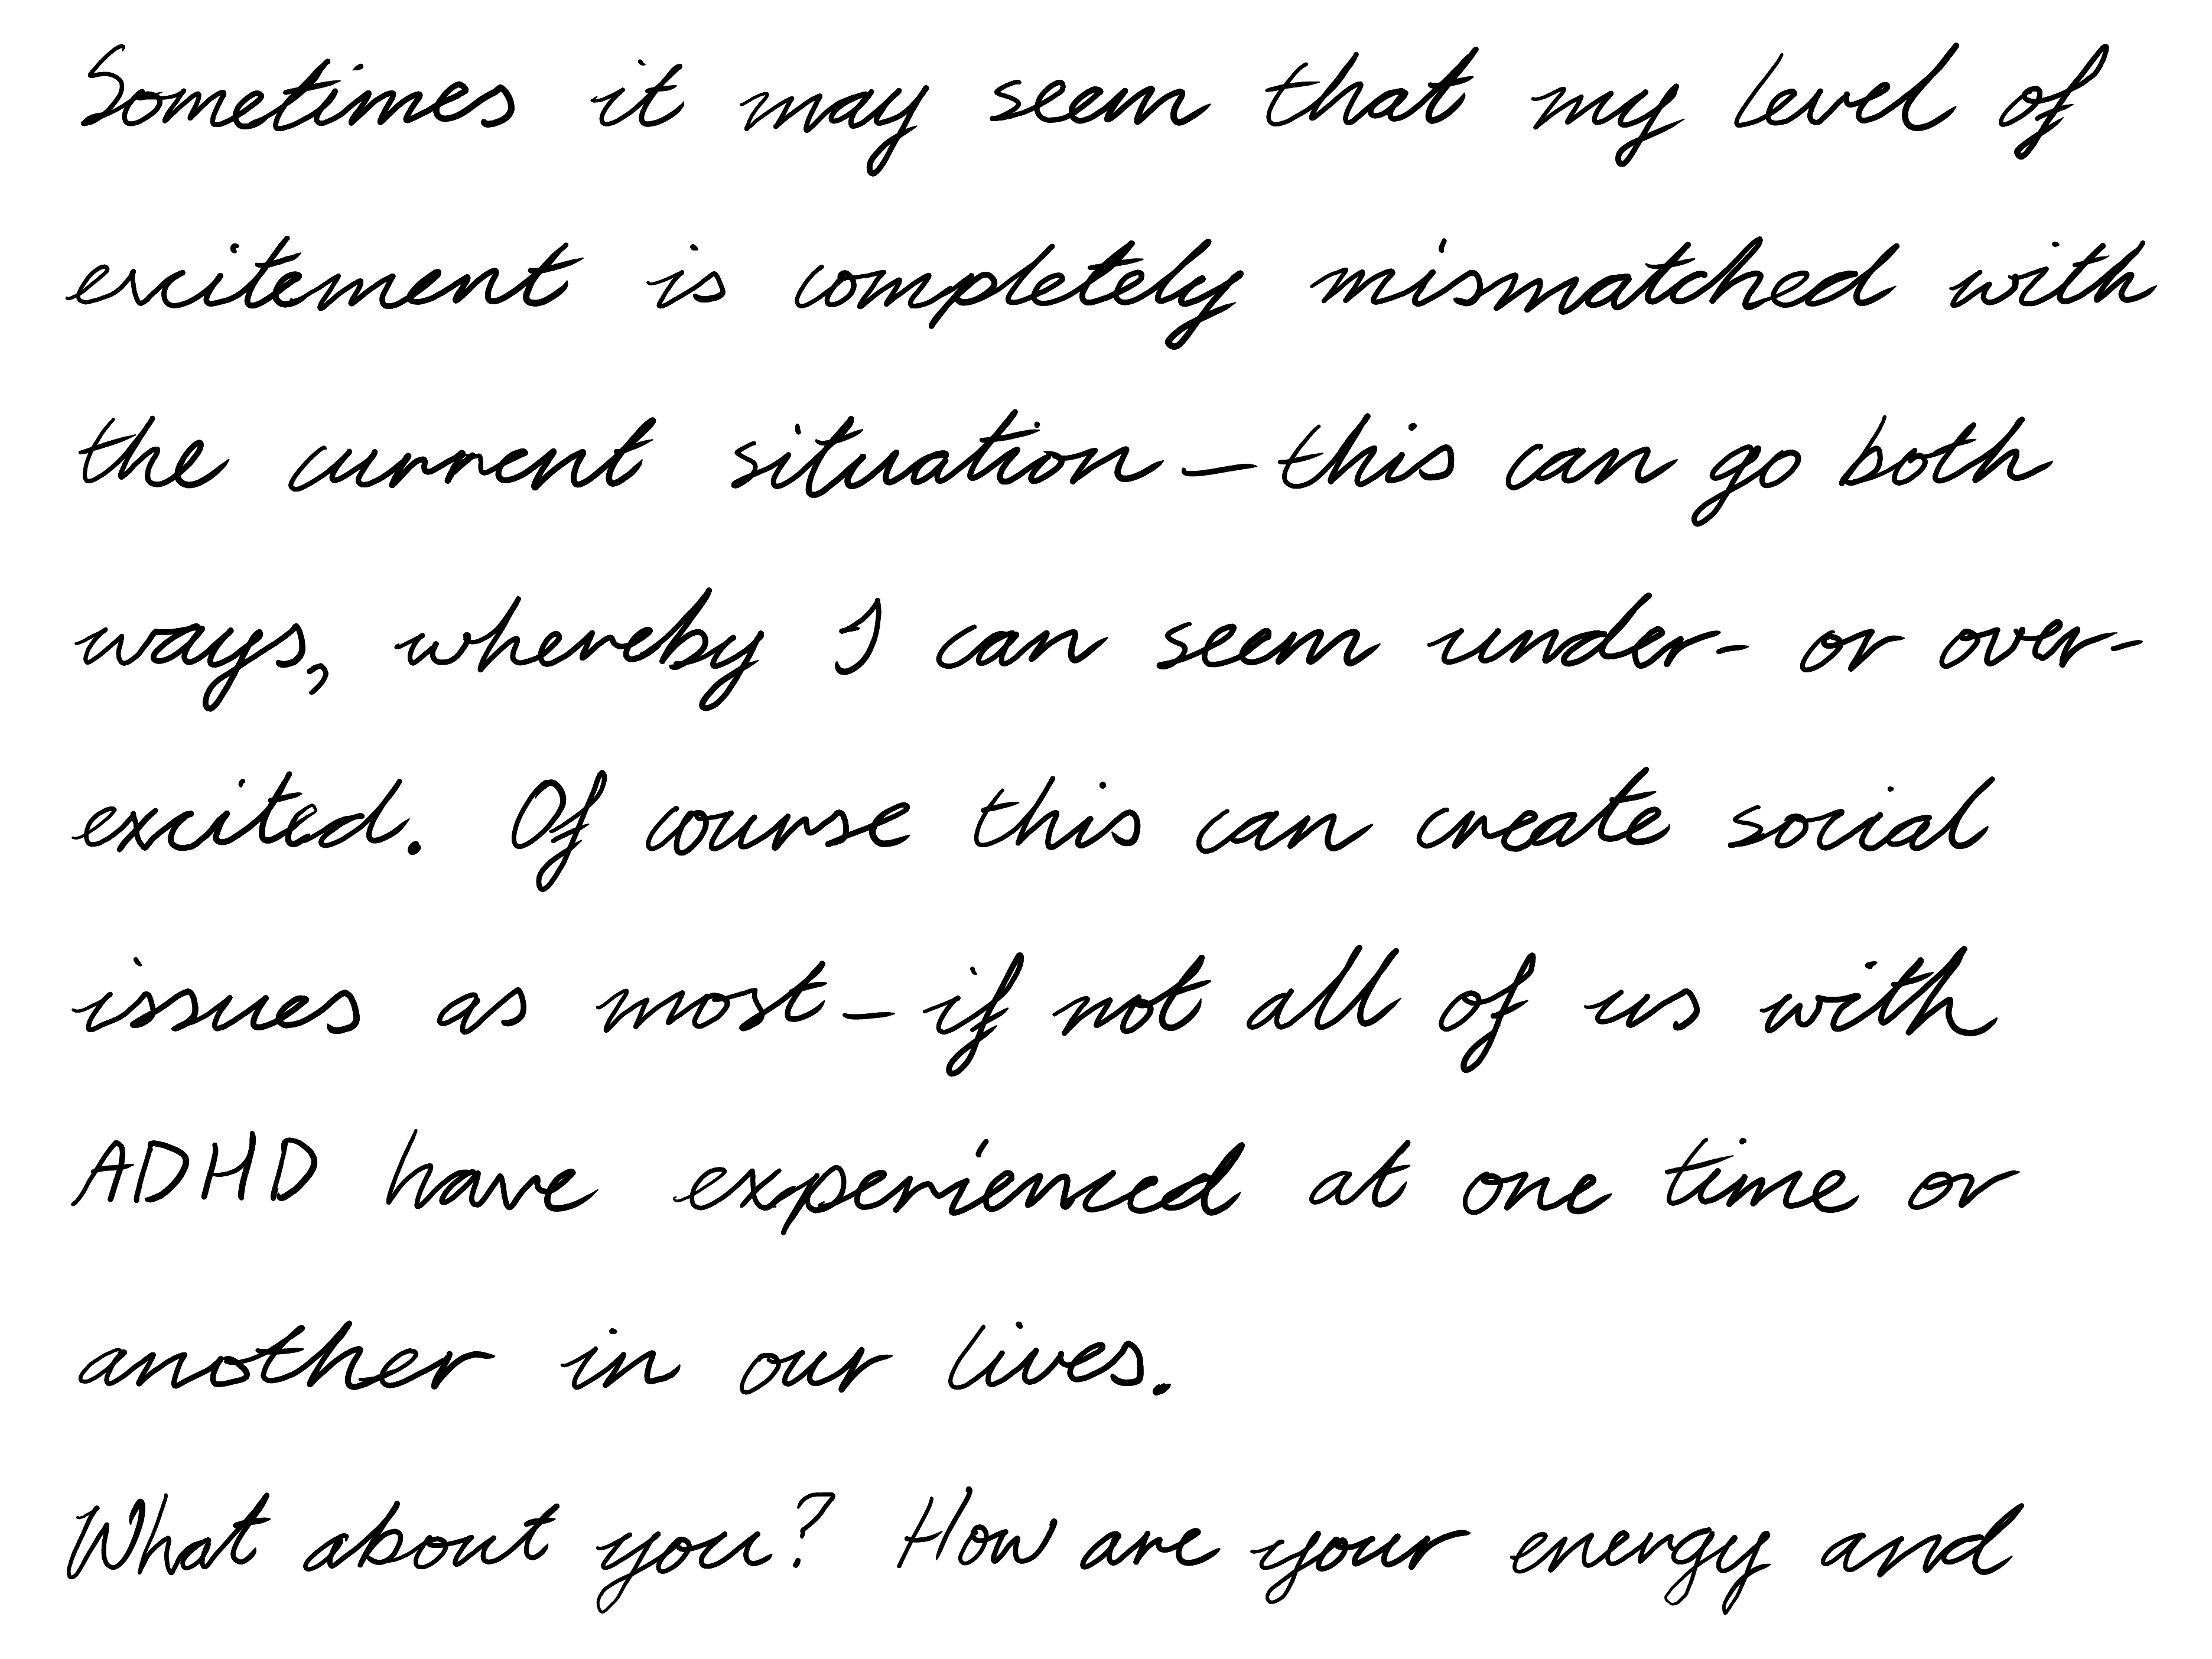 Sometimes it may seem that my level of
excitement is completely mismatched with
the current situation — this can go both
ways, whereby I can seem under- or over-
excited. Of course this can create social
issues as most — if not all of us with
ADHD have experienced at one time or
another in our lives.
What about you? How are your energy and